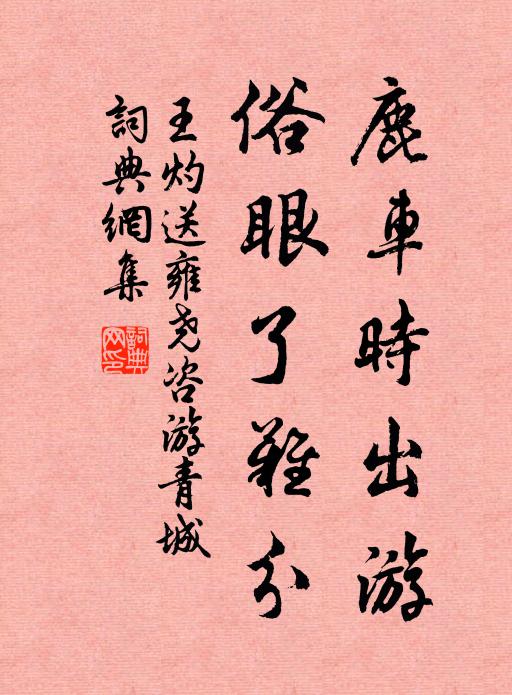 鹿車時出游
俗眼了難分
王灼送雍尧咨游青城
詞典網集
詞典
网印